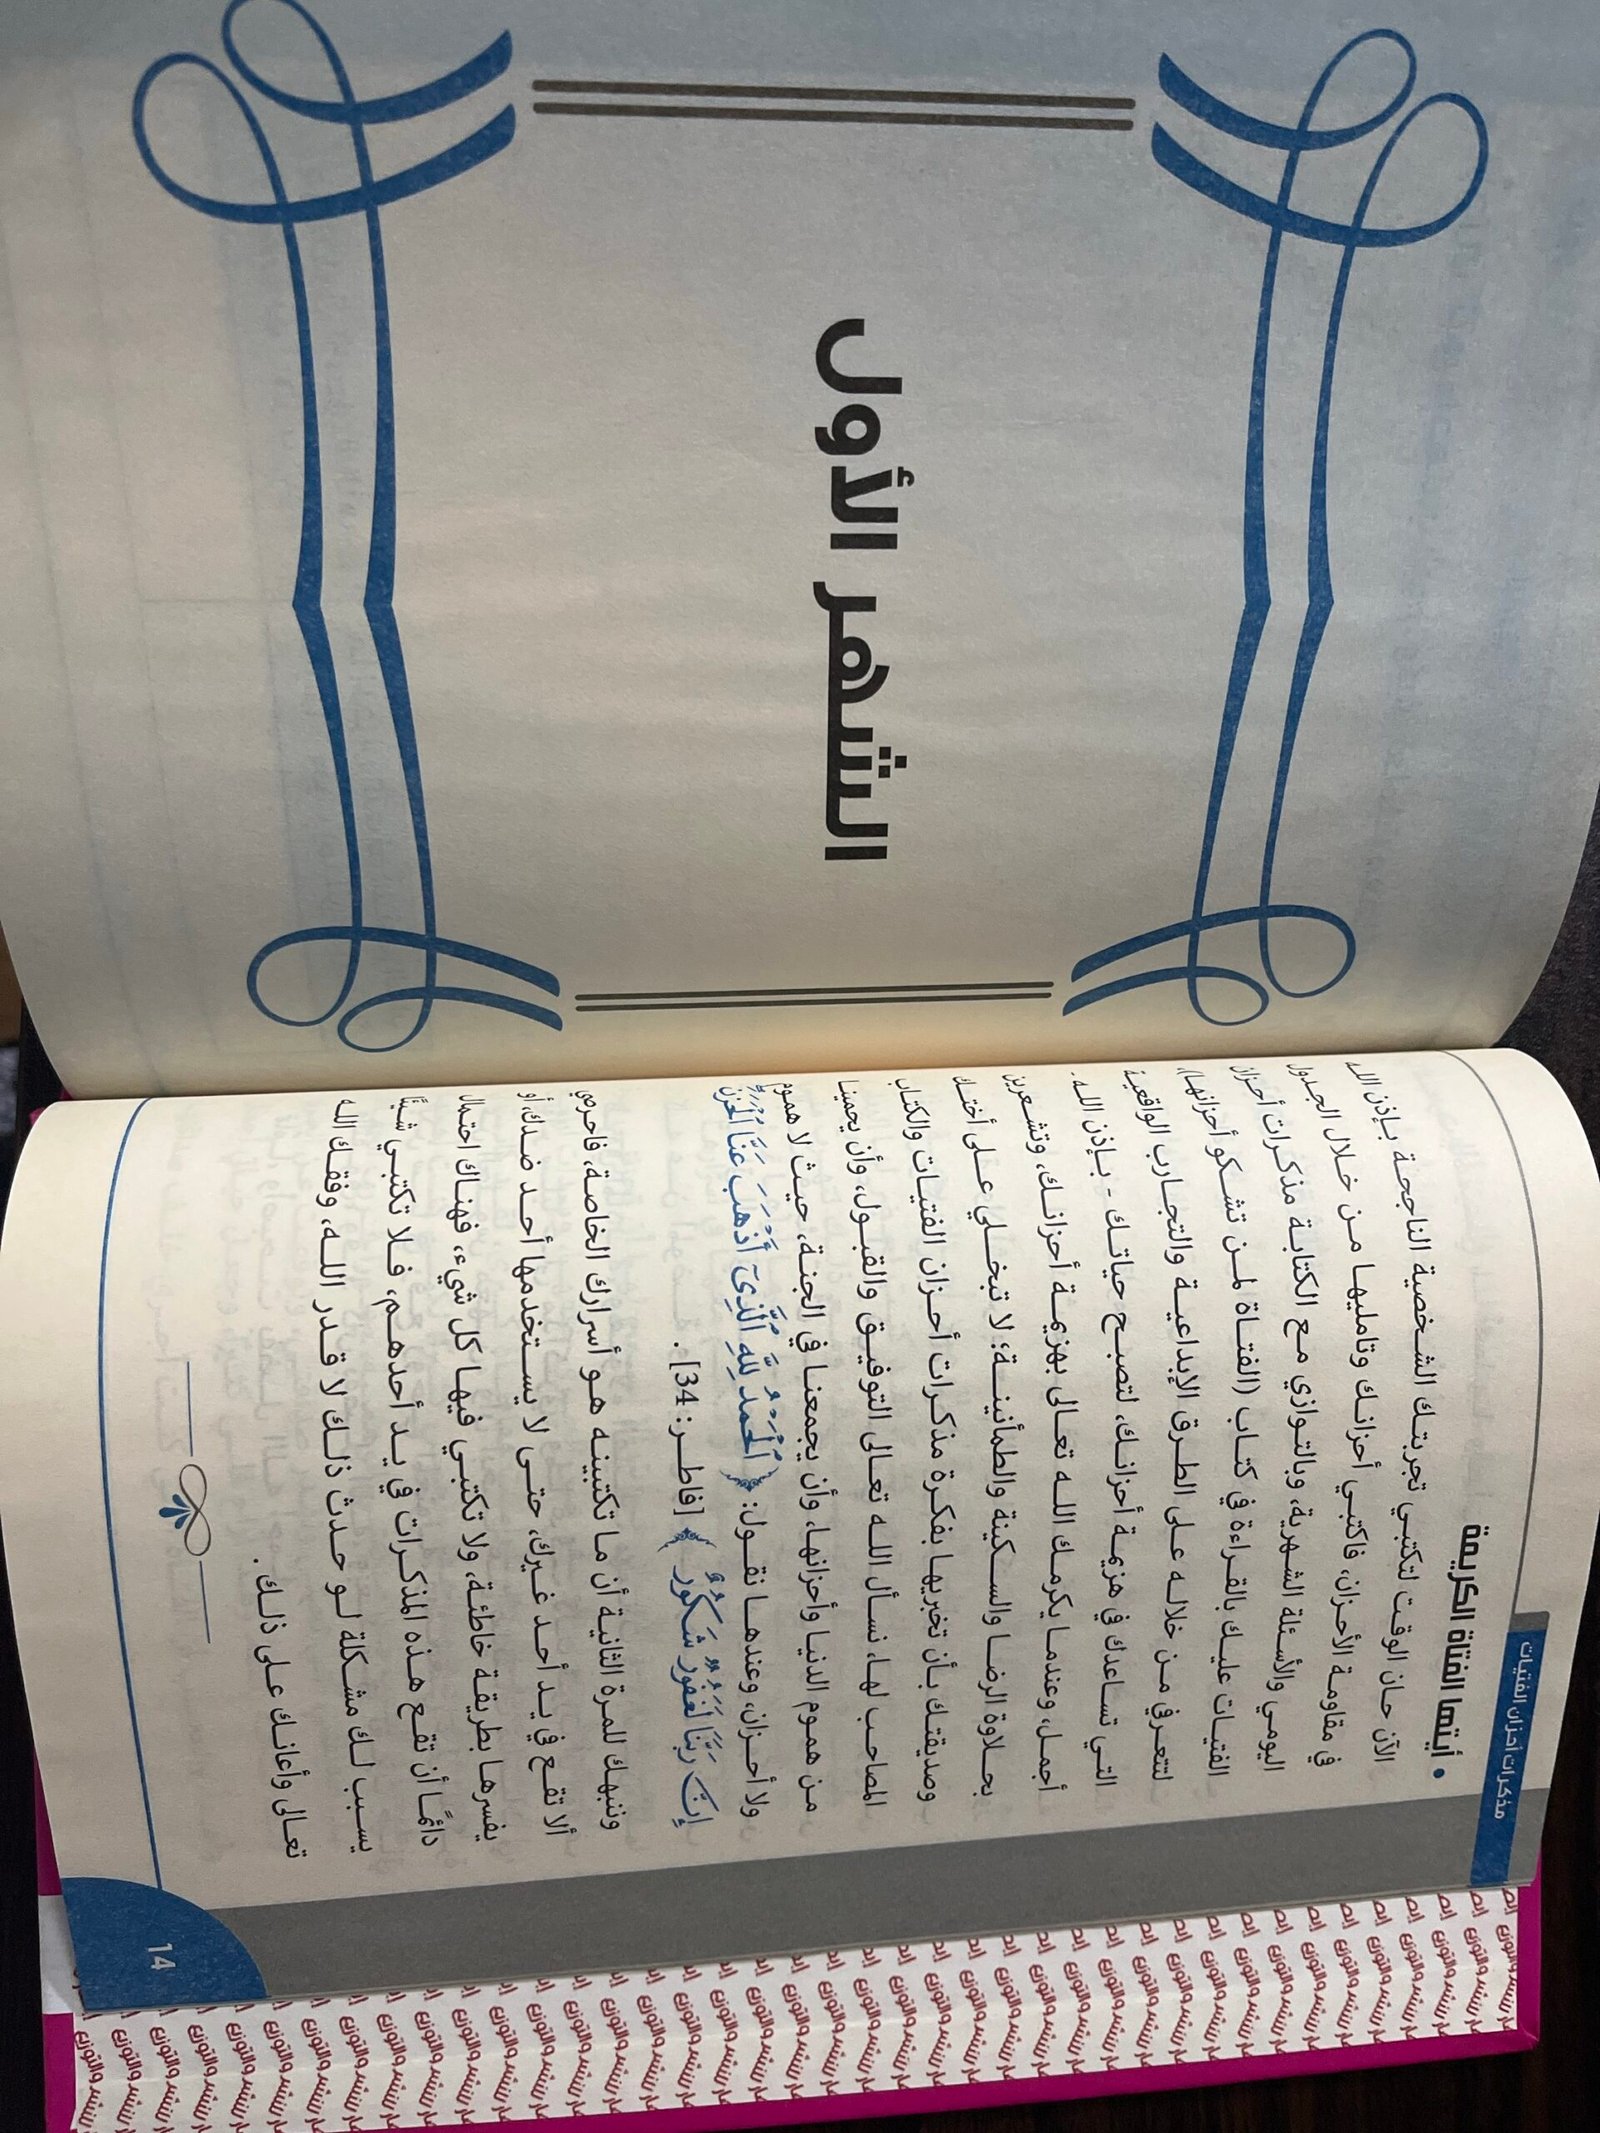 مذكرات أحزان الفتيات
• أيتها الفتاة الكريمة
الآن حان الوقت لتكتبي تجربتك الشخصية الناجحة بإذن الله
في مقاومة الأحزان، فاكتبي أحزانك وتأمليها من خلال الجدول
اليومي والأسئلة الشهرية، وبالتوازي مع الكتابة مذكرات أحزان
الفتيات عليك بالقراءة في كتاب (الفتاة لمن تشكو أحزانها)،
لتتعرفي من خلاله على الطرق الإبداعية والتجارب الواقعية
التي تساعدك في هزيمة أحزانك، لتصبح حياتك - بإذن الله -
أجمل، وعندما يكرمك الله تعالى بهزيمة أحزانك، وتشعرين
بحلاوة الرضا والسكينة والطمأنينة؛ لا تبخلي على أختك
وصديقتك بأن تخبريها بفكرة مذكرات أحزان الفتيات والكتاب
المصاحب لها، نسأل الله تعالى التوفيق والقبول، وأن يحمينا
من هموم الدنيا وأحزانها، وأن يجمعنا في الجنة، حيث لا هموم
ولا أحزان، وعندها نقول: ﴿ ٱلْحَمْدُ لِلَّهِ ٱلَّذِىٓ أَذْهَبَ عَنَّا ٱلْحَزَنَ
إِنَّ رَبَّنَا لَغَفُورٌ شَكُورٌ ﴾ [فاطر: 34].
وننبهك للمرة الثانية أن ما تكتبينه هو أسرارك الخاصة، فاحرصي
ألا تقع في يد أحد غيرك، حتى لا يستخدمها أحد ضدك، أو
يفسرها بطريقة خاطئة، ولا تكتبي فيها كل شيء، فهناك احتمال
دائمًا أن تقع هذه المذكرات في يد أحدهم، فلا تكتبي شيئًا
يسبب لك مشكلة لو حدث ذلك لا قدر الله، وفقك الله
تعالى وأعانك على ذلك.
14
الشهر الأول